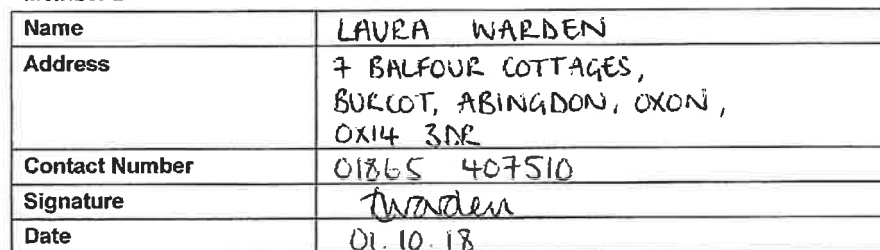 Name LAURA WARDEN
Address 7 BALFOUR COTTAGES,
BURCOT, ABINGDON, OXON,
OX14 3DR
Contact Number 01865 407510
Signature LWarden
Date 01.10.18